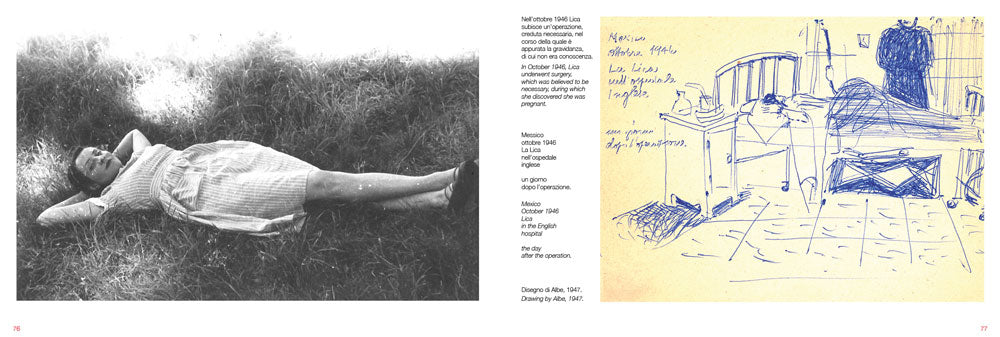 Nell'ottobre 1946 Lica
subisce un'operazione,
creduta necessaria, nel
corso della quale è
appurata la gravidanza,
di cui non era conoscenza.
In October 1946, Lica
underwent surgery,
which was believed to be
necessary, during which
she discovered she was
pregnant.
Messico
ottobre 1946
La Lica
nell'ospedale
inglese
un giorno
dopo l'operazione.
Mexico
October 1946
Lica
in the English
hospital
the day
after the operation.
Disegno di Albe, 1947.
Drawing by Albe, 1947.
ottobre 1946
La Lica
nell'ospedale
Inglese
un giorno
dopo l'operazione.
76
77